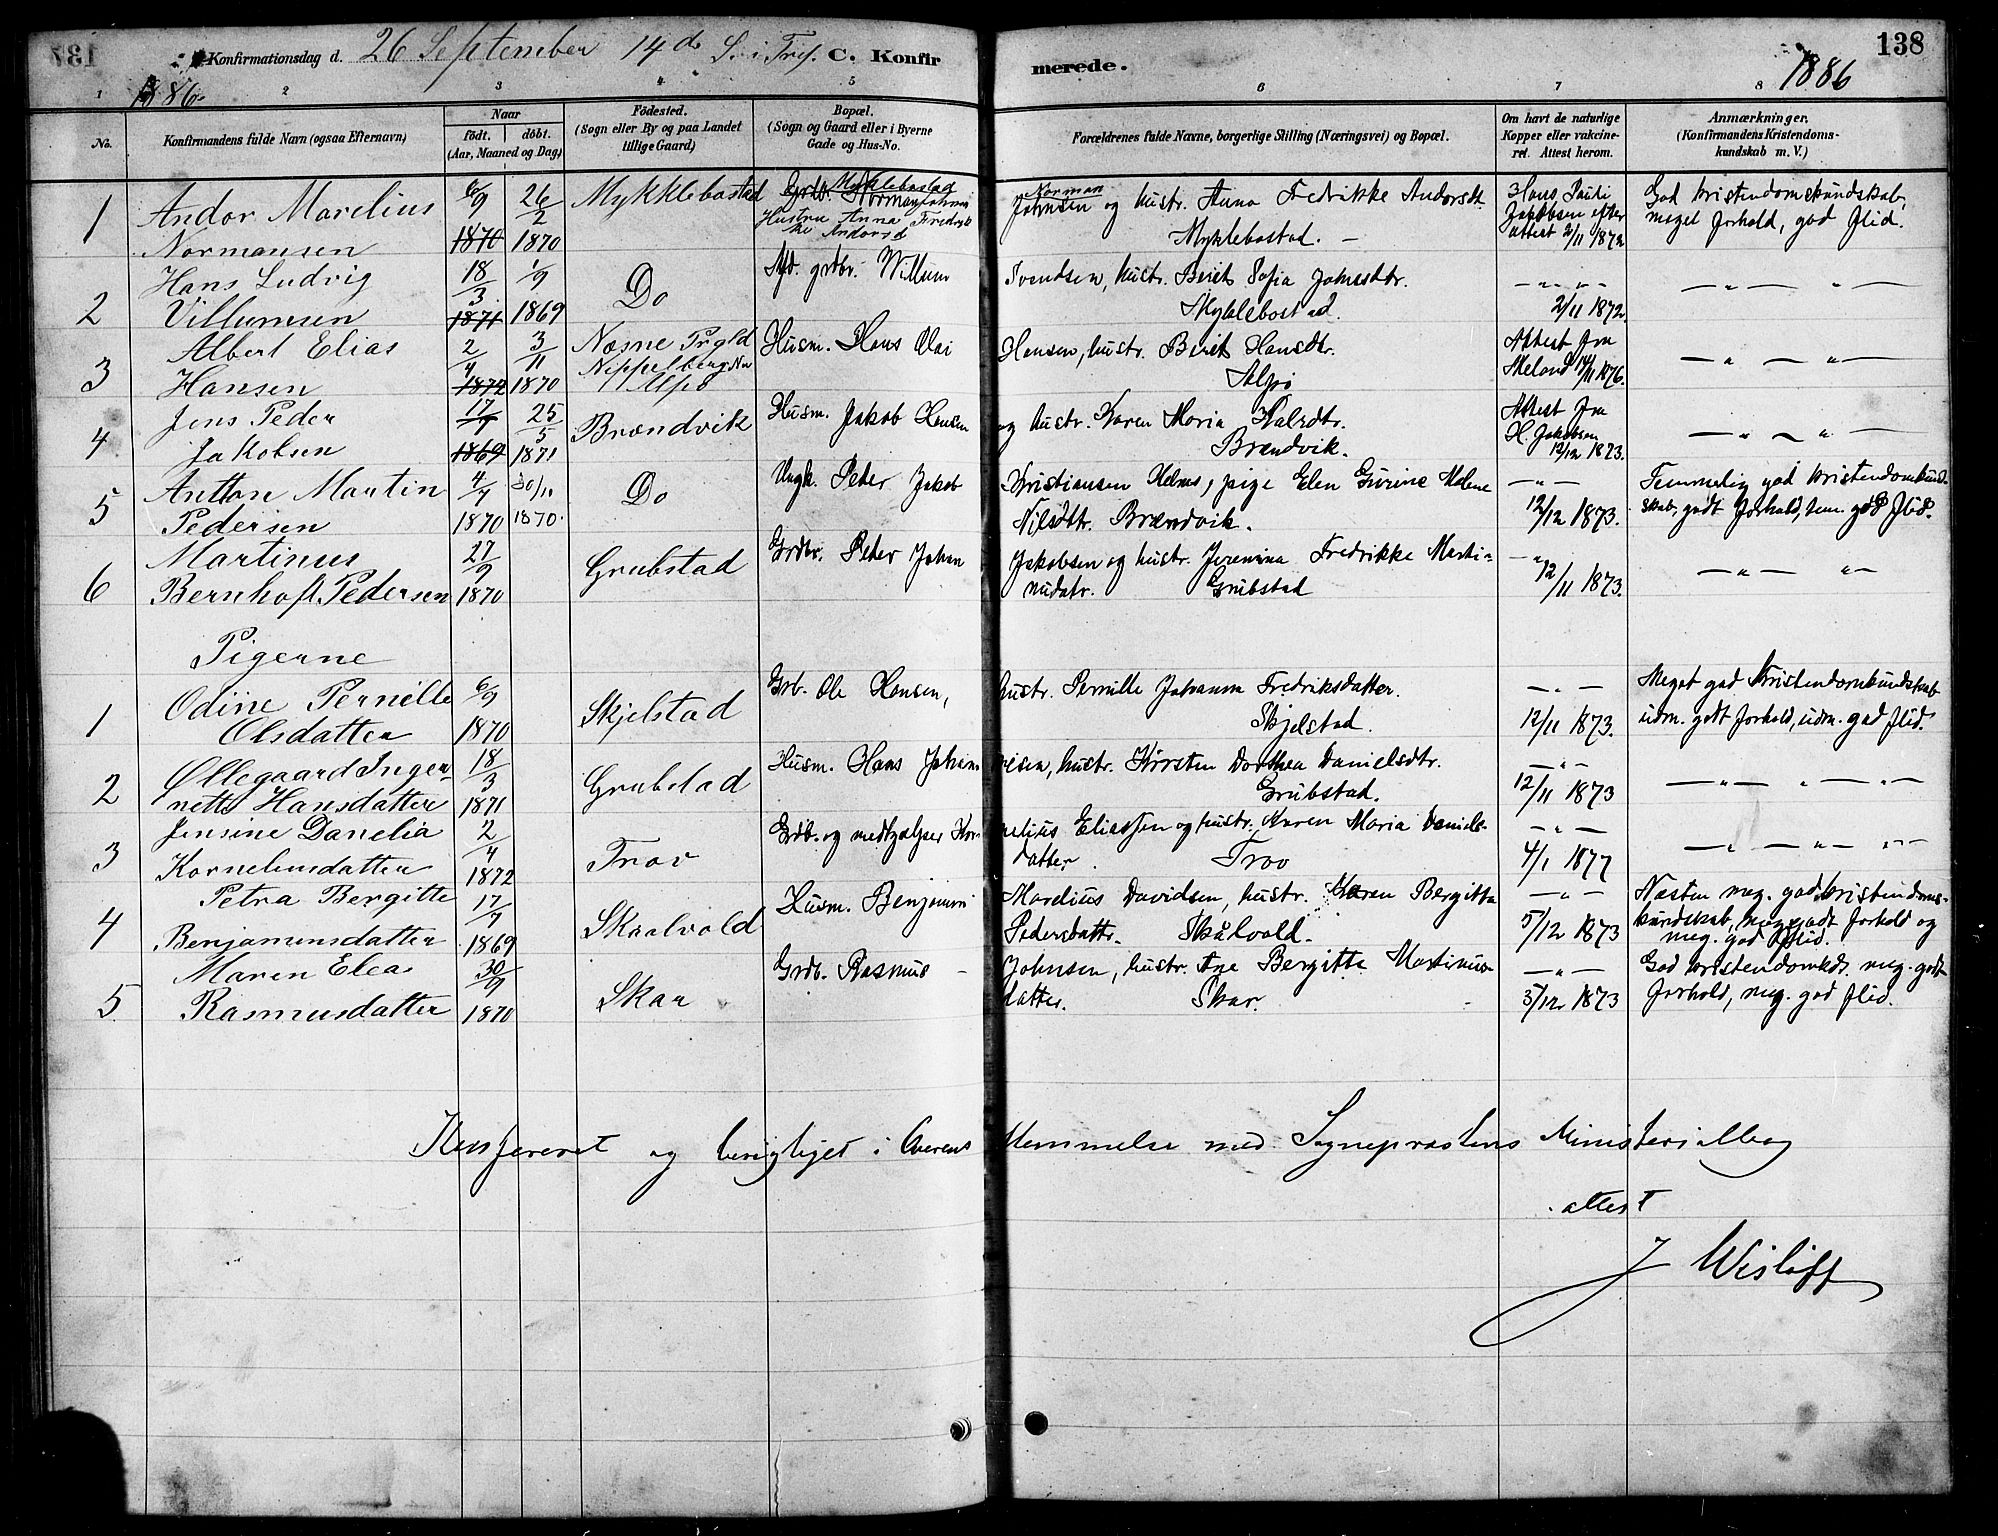 Konfirmationsdag d. 26 September 14de S. i Tref. C. Konfirmerede. 138
1886 1886
1 2 3 4 5 6 7 8
No.
Konfirmandens fulde Navn (ogsaa Efternavn)
Naar
födt. döbt.
(Aar, Maaned og Dag)
Födested.
(Sogn eller By og paa Landet
tillige Gaard)
Bopæl.
(Sogn og Gaard eller i Byerne
Gade og Hus-No.
Forældrenes fulde Navne, borgerlige Stilling (Næringsvei) og Bopæl.
Om havt de naturlige
Kopper eller vakcine-
ret. Attest herom.
Anmærkninger.
(Konfirmandens Kristendoms-
kundskab m. V.)
1 Andor Marelius
Normansen
6/9 1870
26/2 1870
Mykklebostad
Grdb. Myklebostad
Norman Johnsen
Hustru Anna Fredrik
ke Andorsd
Norman
Johnsen og hustr. Anna Fredrikke Andorsdt.
Myklebostad. —
Hans Pauli
Jakobsen efter
attest 2/11 1872
God kristendomskundskab,
meget forhold, god flid.
2 Hans Ludvig
Villumsen
18/3 1871
1/9 1869
Do
Afd. grdbr. Willum
Svendsen, hustr. Berit Sofia Johnsdtr.
Myklebostad.
— „ — „ —
2/11 1872.
— „ — „ —
3 Albert Elias
Hansen
2/4 1872
3/11 1870
Næsne Prgld
Alpø
Husm. Hans
Hansen, hustr. Berit Hansdtr.
Alpø
Attest fra
Meland 14/11 1876.
— „ — „ —
4 Jens Peder
Jakobsen
17/7 1869
25/5 1871
Brændvik
Husm. Jakob Hansen
og hustr. Karen Maria Halsdtr.
Brændvik.
Attest fra
H. Jakobsen
12/12 1873.
— „ — „ —
5 Antton Martin
Pedersen
4/7 1870
30/11 1870.
Do
Ungk. Peter Jakob
Kristiansen Helnes, pige Elen Gurine Malene
Nilsdtr. Brændvik.
— „ —
12/12 1873.
Temmelig god kristendomskund-
skab, godt forhold, tem. god flid.
6 Martinus
Bernhoft Pedersen
27/9 1870
Grubstad
Grdbr. Peter Johan
Jakobsen og hustr. Jeremina Fredrikke Marti-
nusdtr. Grubstad
— „ —
12/11 1873.
— „ — „ —
Pigerne
1 Odine Pernille
Olsdatter
6/9 1870
Skjelstad
Grb. Ole Hansen,
hustr. Pernille Johanna Fredriksdatter.
Skjelstad.
— „ —
12/11 1873.
Meget god Kristendomskundskab
udm. godt forhold, udm. god flid.
2 Ollegaard Inger-
nette Hansdatter
18/3 1871
Grubstad
Husm. Hans Johan-
nesen, hustr. Kirsten Dorthea Danielsdtr.
Grubstad.
— „ —
12/11 1873
— „ — „ — „ —
3 Jensine Danelia
Korneliusdatter
2/4 1872
Trov
Grdb. og medhjælper Kor-
nelius Eliassen og hustr. Karen Maria Daniels-
datter. Trov
— „ —
4/1 1877
— „ — „ — „ —
4 Petra Bergitte
Benjaminsdatter
17/7 1869
Skaalvold
Husm. Benjamin
Marelius Davidsen, hustr. Karen Bergitta
Pedersdattr. Skålvold.
— „ —
5/12 1873
Næsten meg. god kristendoms-
kundskab, meg. godt forhold og
meg. god flid.
5 Maren Elea
Rasmusdatter
30/9 1870
Skar
Grdb. Rasmus —
Johnsen, hustr. Ane Bergitte Martinus-
datter. Skar.
— „ —
5/12 1873
God kristendomskdr. meg. godt
forhold, meg. god flid.
Konfereret og berigtiget i Overens stemmelse med Sognepræstens Ministerialbog
attest
J Wisløff